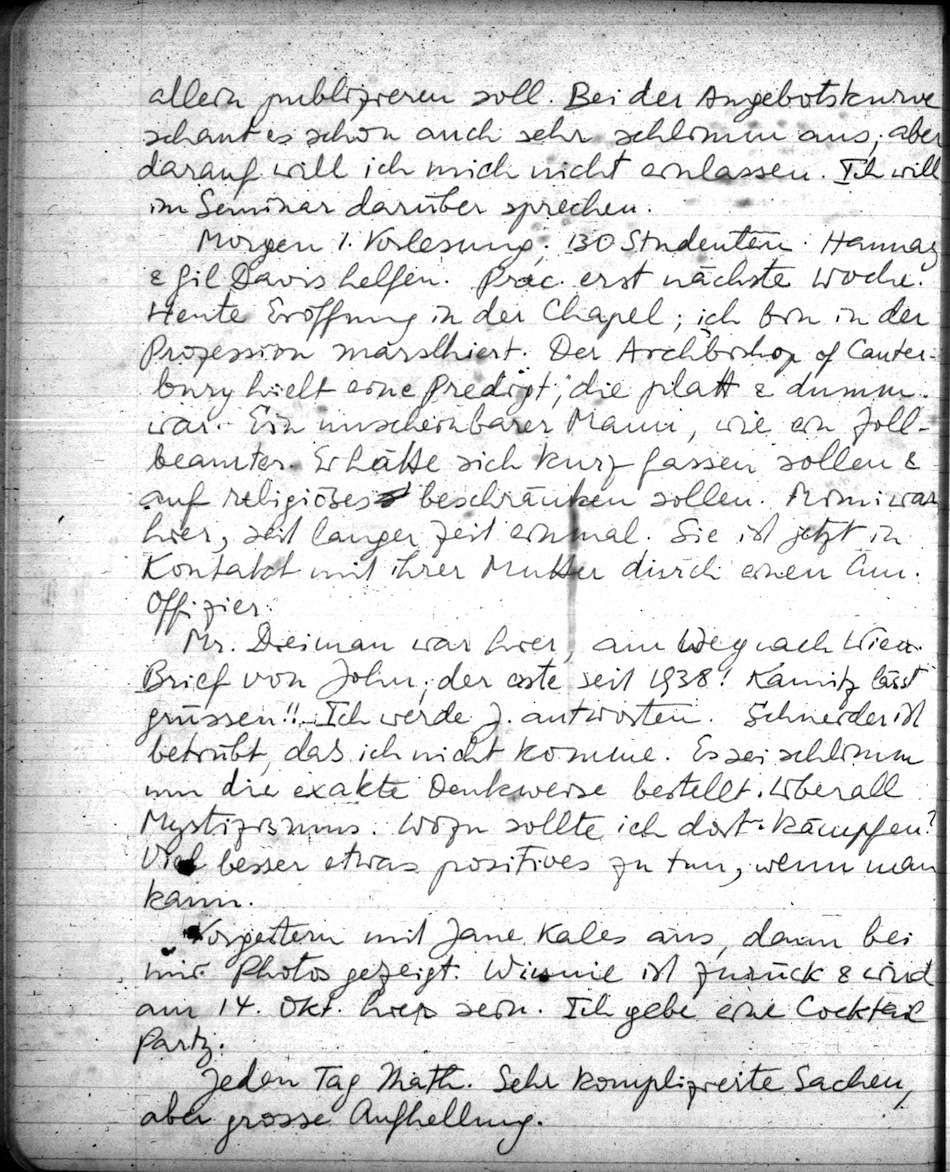 allein publizieren soll. Bei der Angebotskurve
schaut es schon auch sehr schlimm aus, aber
darauf will ich mich nicht einlassen. Ich will
im Seminar darüber sprechen.
Morgen 1. Vorlesung; 130 Studenten. Hannay
& Gil Davis helfen. Prec. erst nächste Woche.
Heute Eröffnung in der Chapel; ich bin in der
Prozession marschiert. Der Archbishop of Canter-
bury hielt eine Predigt, die platt & dumm
war. Ein unscheinbarer Mann, wie ein Zoll-
beamter. Er hätte sich kurz fassen sollen &
auf religiöses beschränken sollen. Momi war
hier, seit langer Zeit einmal. Sie ist jetzt in
Kontakt mit ihrer Mutter durch einen Am.
Offizier.
Mr. Dreiman war hier, am Weg nach Wien.
Brief von John, der erste seit 1938! Kamitz lässt
grüssen!! Ich werde J. antworten. Schneider ist
betrübt, dass ich nicht komme. Es sei schlimm
um die exakte Denkweise bestellt. Überall
Mystizismus. Wozu sollte ich dort kämpfen?
Viel besser etwas positives zu tun, wenn man
kann.
Vorgestern mit Jane Kales aus, dann bei
mir Photos gezeigt. Winnie ist zurück & wird
am 14. Okt. hier sein. Ich gebe eine Cocktail
Party.
Jeden Tag Math. Sehr komplizierte Sachen,
aber grosse Aufhellung.